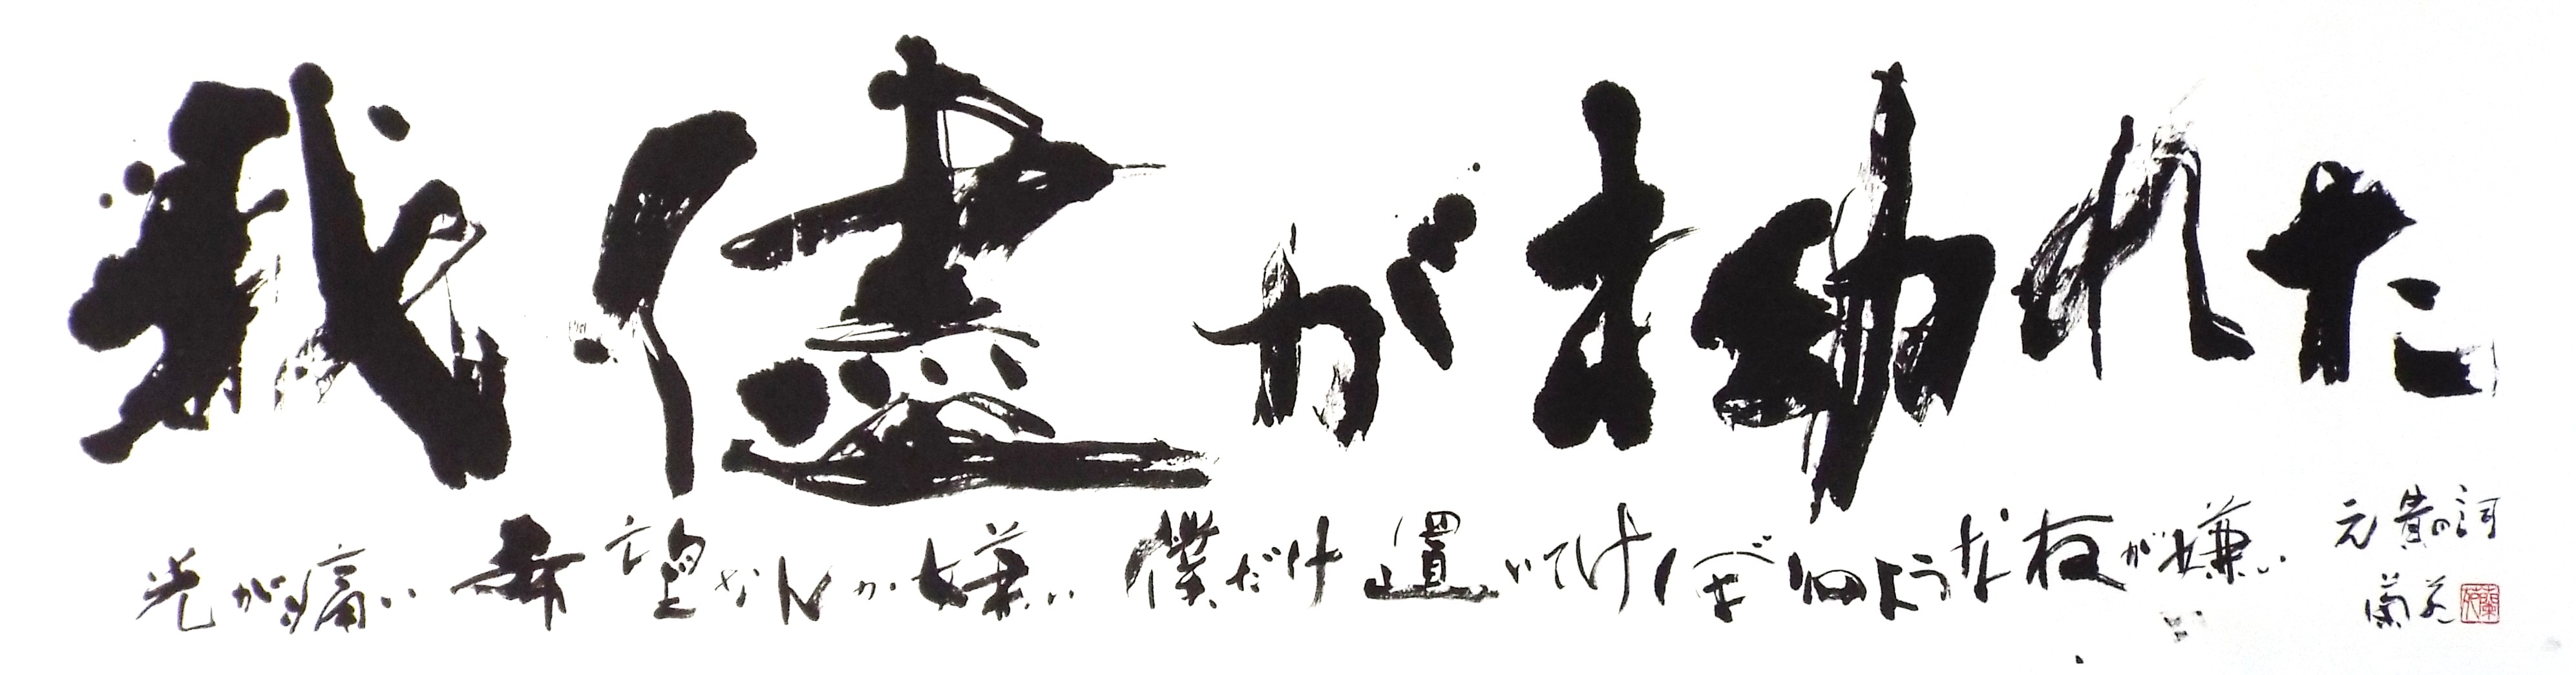 我儘が拗れた
光が痛い 希望なんか嫌い 僕だけ置いてけぼりのような夜が嫌い
元貴の詞
蘭苑
蘭苑